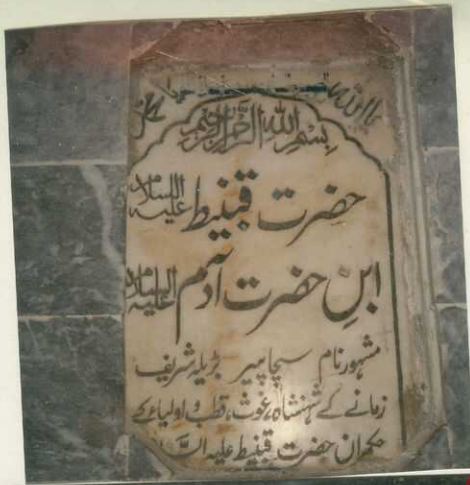 یا اللہ یا محمد
بسم اللہ الرحمن الرحیم
حضرت قبنیط علیہ السلام
ابنِ حضرت آدم علیہ السلام
مشہور نام سچا پیر بڑیلہ شریف
زمانے کے شہنشاہ، غوث، قطب و اولیاء کے
حکمران حضرت قبنیط علیہ السلام